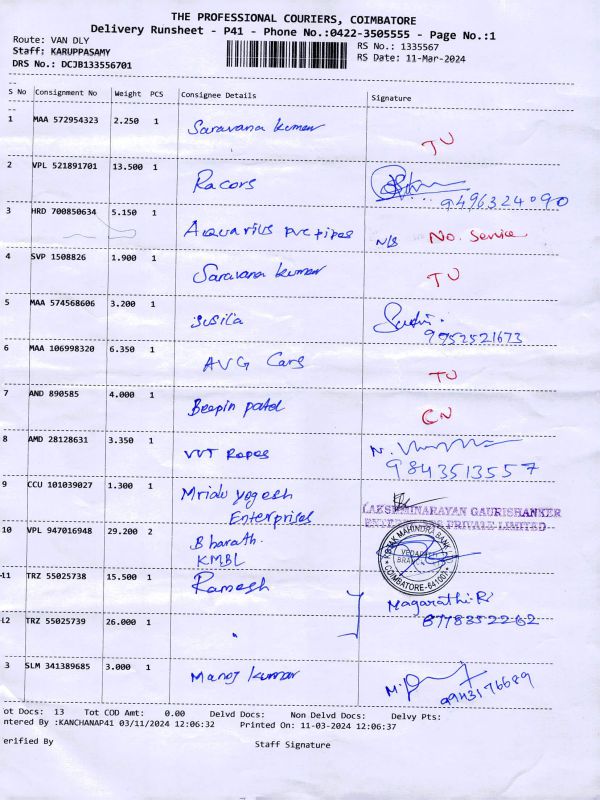 THE PROFESSIONAL COURIERS, COIMBATORE
Delivery Runsheet - P41 - Phone No.:0422-3505555 - Page No.:1
Route: VAN DLY
RS No.: 1335567
Staff: KARUPPASAMY
RS Date: 11-Mar-2024
DRS No.: DCJB133556701
S No Consignment No Weight PCS Consignee Details Signature
1 MAA 572954323 2.250 1 Saravana kumar TU
2 VPL 521891701 13.500 1 Racors
9496324090
3 HRD 700850634 5.150 1 Aquarius pvc pipes N/S No. Service
4 SVP 1508826 1.900 1 Saravana kumar TU
5 MAA 574568606 3.200 1 Susila
6 MAA 106998320 6.350 1 AVG Cars TU
7 AND 890585 4.000 1 Beepin patel CN
8 AMD 28128631 3.350 1 VVT Ropes
9843513557
9 CCU 101039027 1.300 1 Mridu yogesh
Enterprises
LAKSHMINARAYAN GAURISHANKER
ENTERPRISES PRIVATE LIMITED
10 VPL 947016948 29.200 2 Bharath.
KMBL
KOTAK MAHINDRA BANK
BRANCH
COIMBATORE
11 TRZ 55025738 15.500 1 Ramesh
Magarathi.R
8778352262
12 TRZ 55025739 26.000 1 "
3 SLM 341389685 3.000 1 Manoj kumar
9943176689
ot Docs: 13 Tot COD Amt: 0.00 Delvd Docs: Non Delvd Docs: Delvy Pts:
ntered By :KANCHANAP41 03/11/2024 12:06:32 Printed On: 11-03-2024 12:06:37
erified By Staff Signature